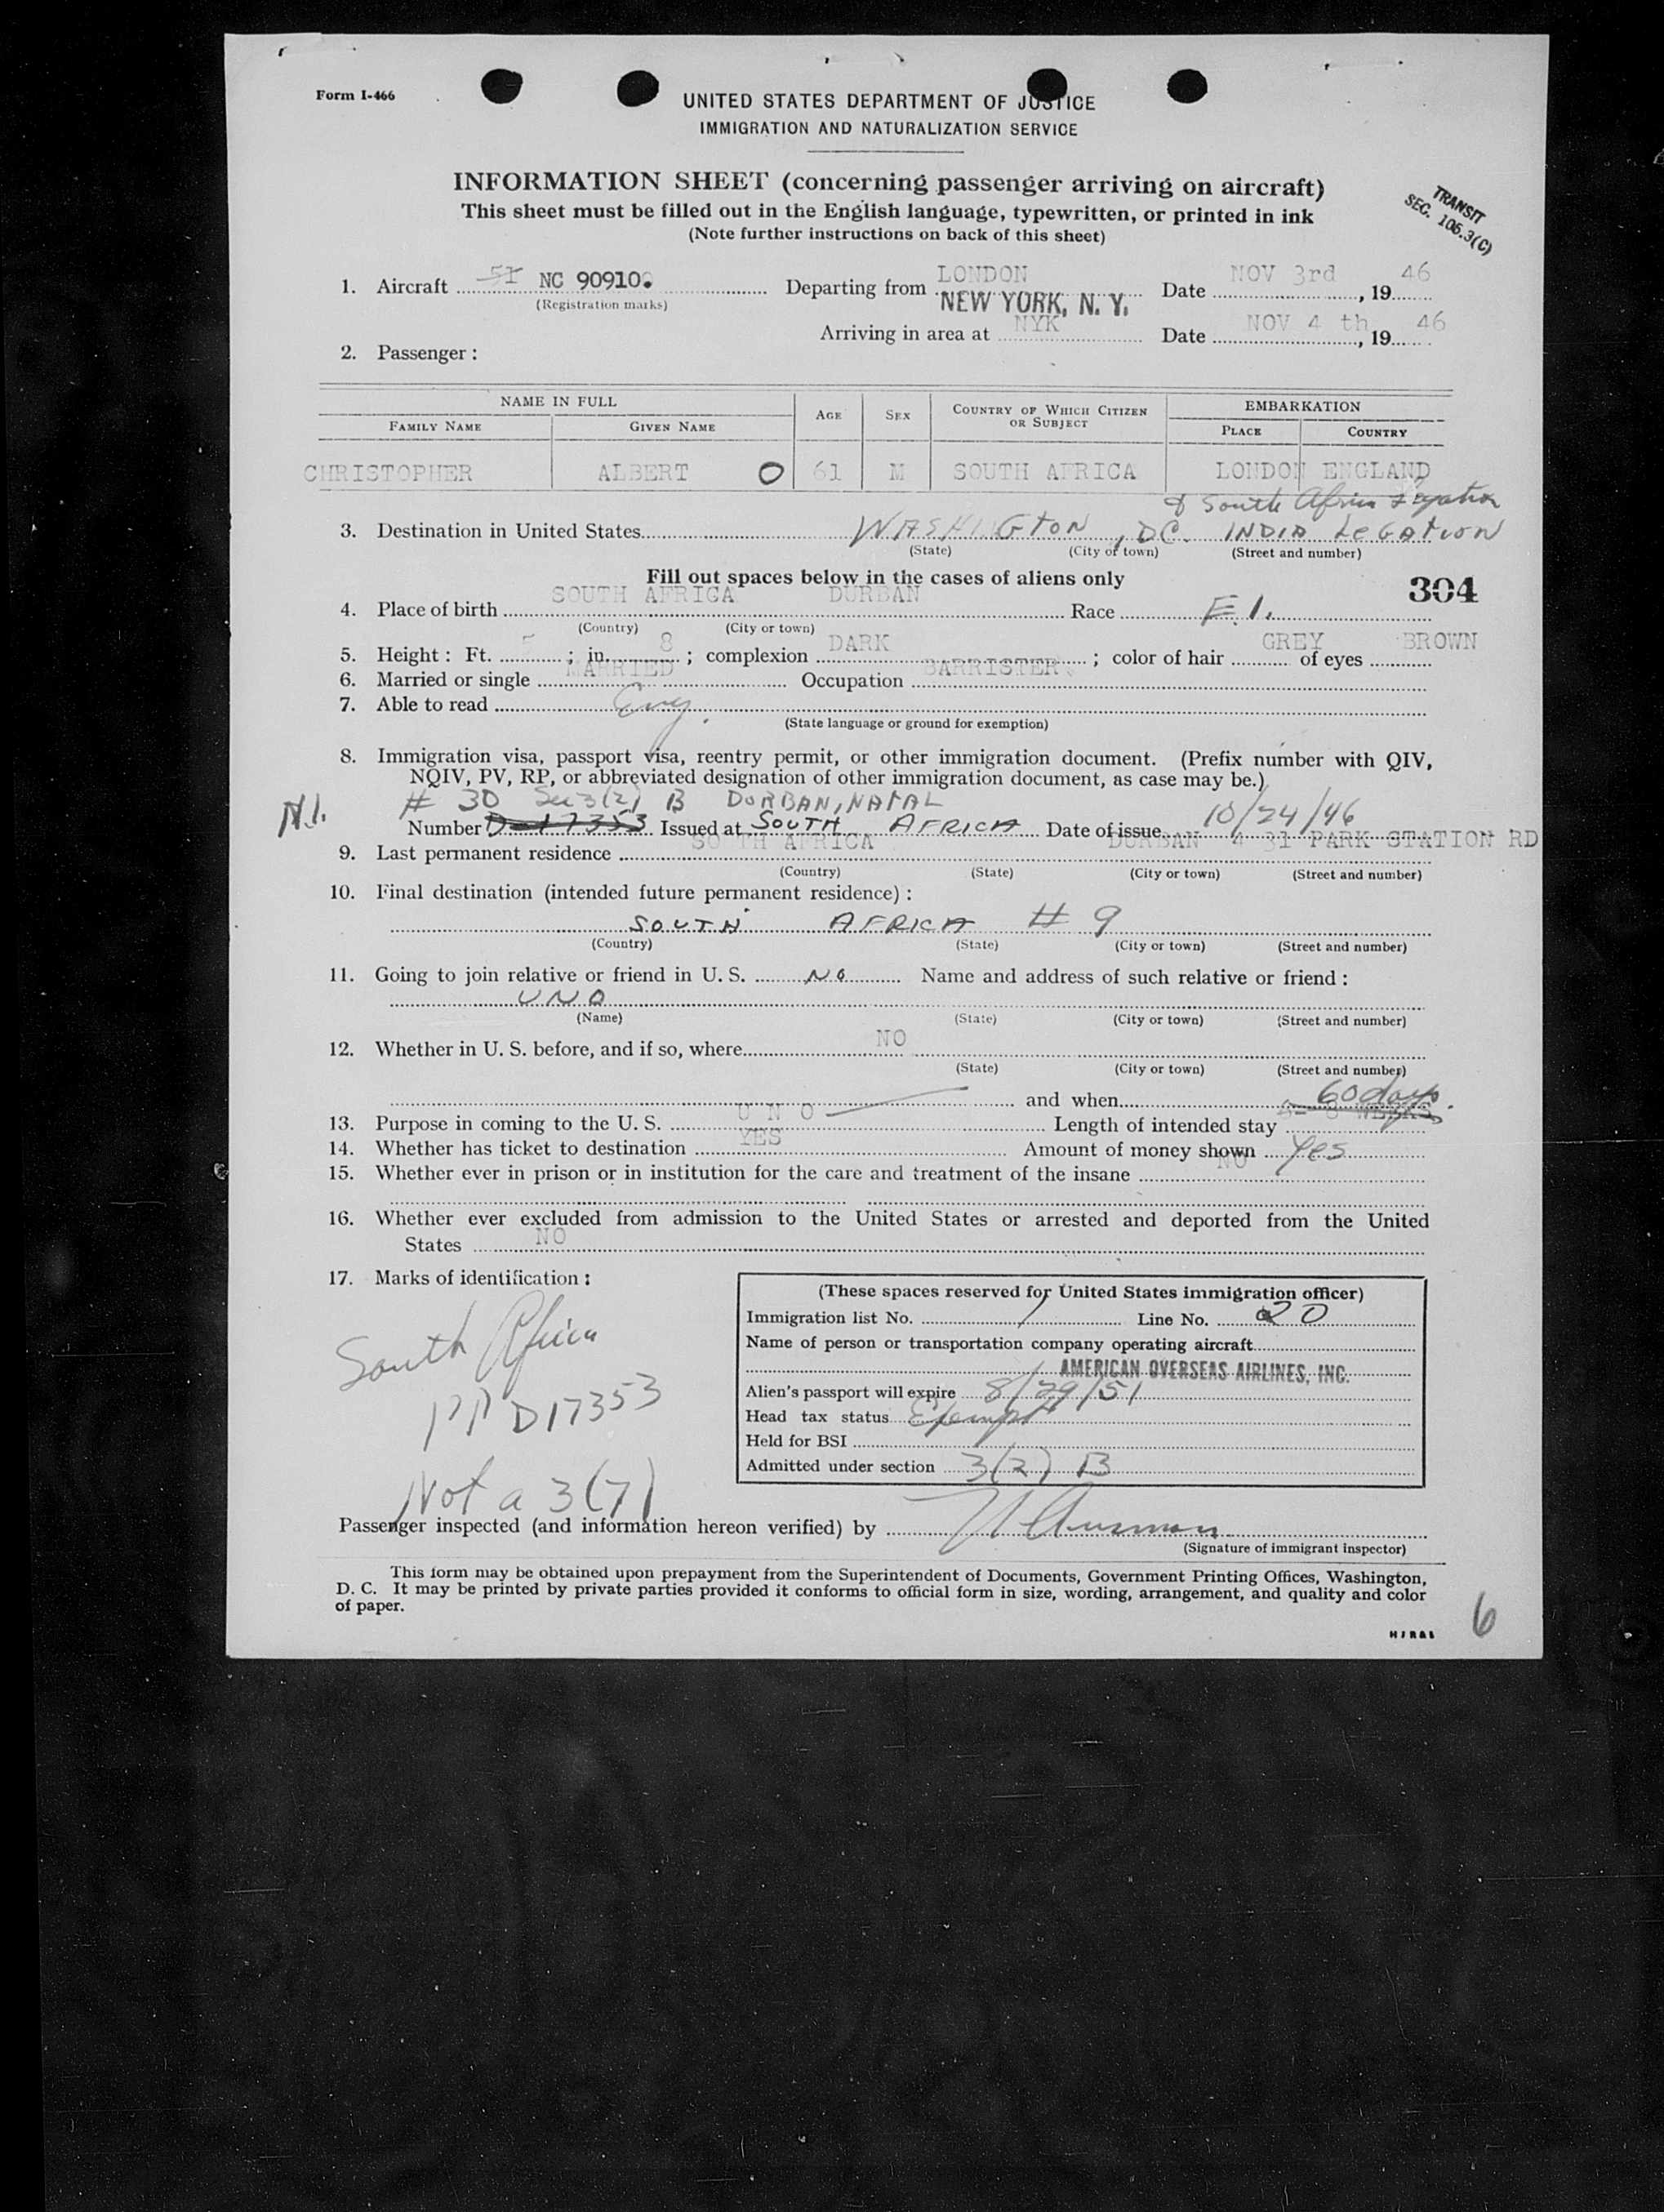 Form I-466
UNITED STATES DEPARTMENT OF JUSTICE
IMMIGRATION AND NATURALIZATION SERVICE
INFORMATION SHEET (concerning passenger arriving on aircraft)
This sheet must be filled out in the English language, typewritten, or printed in ink
(Note further instructions on back of this sheet)
TRANSIT
SEC. 106.3(C)
1. Aircraft NC 90910. Departing from LONDON Date NOV 3rd, 1946
(Registration marks)
NEW YORK, N. Y.
Arriving in area at NYK Date NOV 4 th, 1946
2. Passenger :
NAME IN FULL AGE SEX COUNTRY OF WHICH CITIZEN OR SUBJECT EMBARKATION
FAMILY NAME GIVEN NAME PLACE COUNTRY
CHRISTOPHER ALBERT O 61 M SOUTH AFRICA LONDON ENGLAND
South African Legation
3. Destination in United States WASHINGTON, DC. INDIA LEGATION
(State) (City or town) (Street and number)
Fill out spaces below in the cases of aliens only
304
4. Place of birth SOUTH AFRICA DURBAN Race E.I.
(Country) (City or town)
5. Height : Ft. 5 ; in. 8 ; complexion DARK ; color of hair GREY of eyes BROWN
6. Married or single MARRIED Occupation BARRISTER
7. Able to read Eng.
(State language or ground for exemption)
8. Immigration visa, passport visa, reentry permit, or other immigration document. (Prefix number with QIV,
NQIV, PV, RP, or abbreviated designation of other immigration document, as case may be.)
N.I. # 30 Sec 3(2) B DURBAN, NATAL
Number D-17353 Issued at SOUTH AFRICA Date of issue 10/24/46
9. Last permanent residence SOUTH AFRICA DURBAN 4 31 PARK STATION RD
(Country) (State) (City or town) (Street and number)
10. Final destination (intended future permanent residence) :
SOUTH AFRICA # 9
(Country) (State) (City or town) (Street and number)
11. Going to join relative or friend in U. S. NO Name and address of such relative or friend :
UNO
(Name) (State) (City or town) (Street and number)
12. Whether in U. S. before, and if so, where NO
(State) (City or town) (Street and number)
and when
60 days.
13. Purpose in coming to the U. S. U N O Length of intended stay
14. Whether has ticket to destination YES Amount of money shown Yes
15. Whether ever in prison or in institution for the care and treatment of the insane NO
16. Whether ever excluded from admission to the United States or arrested and deported from the United
States NO
17. Marks of identification :
South Africa
PP D17353
Not a 3(7)
(These spaces reserved for United States immigration officer)
Immigration list No. 1 Line No. 20
Name of person or transportation company operating aircraft
AMERICAN OVERSEAS AIRLINES, INC.
Alien's passport will expire 8/29/51
Head tax status Exempt
Held for BSI
Admitted under section 3(2) B
Passenger inspected (and information hereon verified) by
(Signature of immigrant inspector)
This form may be obtained upon prepayment from the Superintendent of Documents, Government Printing Offices, Washington,
D. C. It may be printed by private parties provided it conforms to official form in size, wording, arrangement, and quality and color
of paper.
6